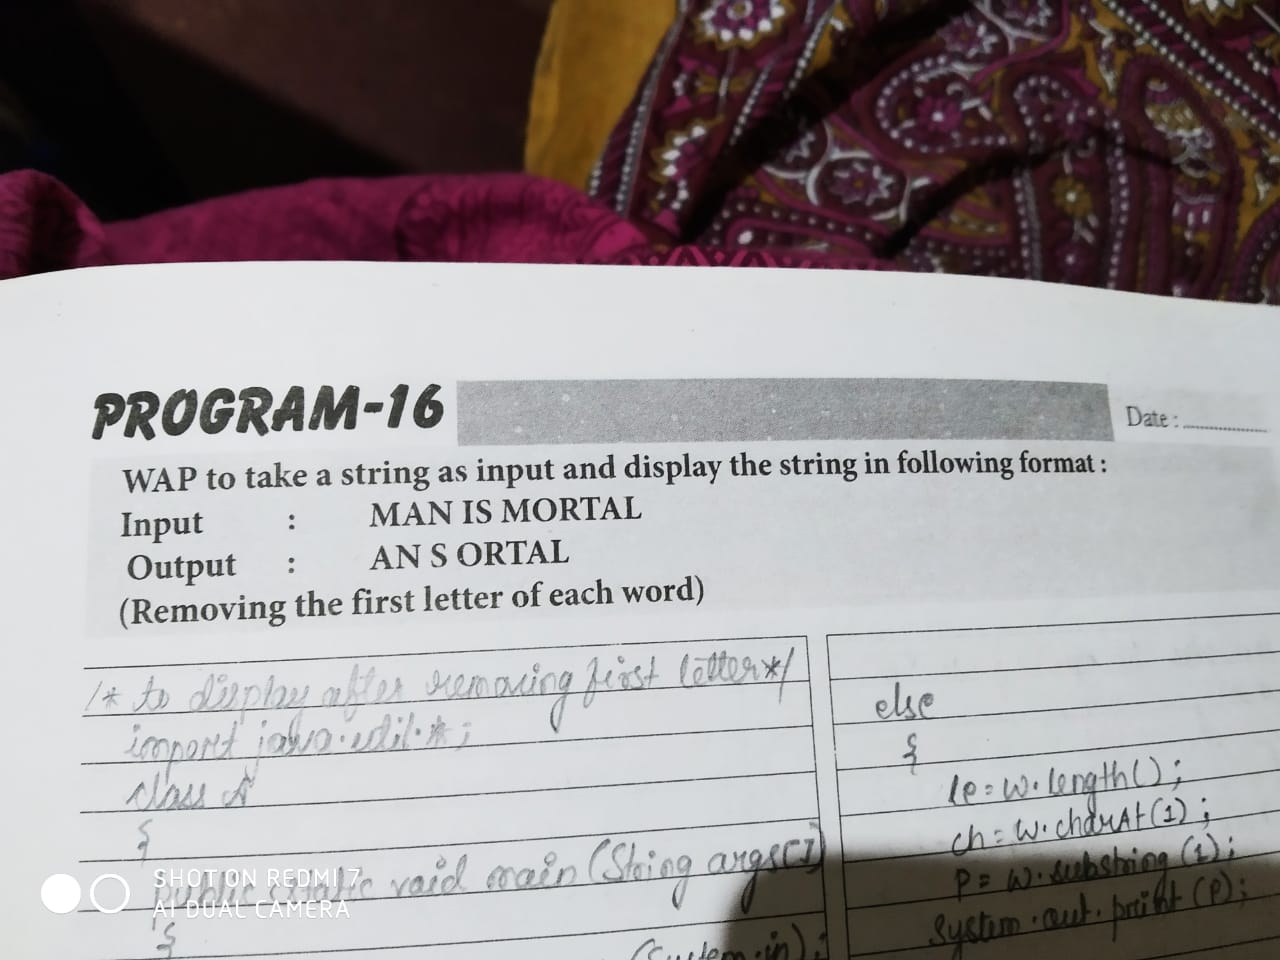 PROGRAM-16
Date : ................
WAP to take a string as input and display the string in following format :
Input : MAN IS MORTAL
Output : AN S ORTAL
(Removing the first letter of each word)
/* to display after removing first letter*/
import java.util.*;
class A
{
public static void main (String args[])
{
(System.in);
else
{
le=w.length();
ch=w.charAt(1);
p= w.substring(1);
System.out.print(p);
SHOT ON REDMI 7
AI DUAL CAMERA